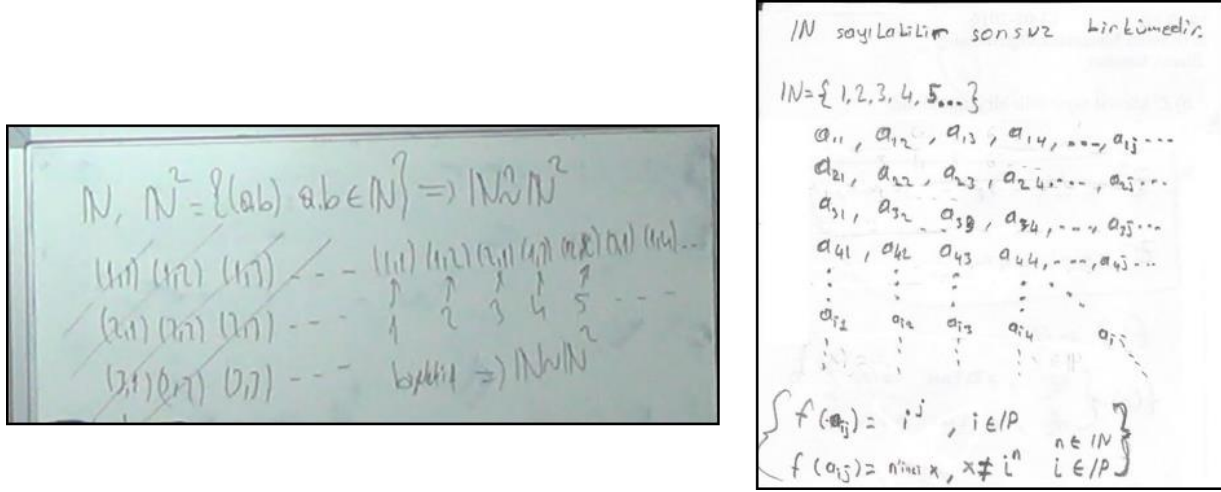 ℕ, ℕ² = {(a,b) a,b ∈ ℕ} ⇒ ℕ ~ ℕ²
(1,1) (1,2) (1,3) - - - - (1,1) (1,2) (2,1) (1,3) (2,2) (3,1) (1,4) ...
↑ ↑ ↑ ↑ ↑
(2,1) (2,2) (2,3) - - - 1 2 3 4 5 - - - -
(3,1) (3,2) (3,3) - - - ⇒ ℕ ~ ℕ²
ℕ sayılabilir sonsuz bir kümedir.
ℕ = {1, 2, 3, 4, 5...}
a₁₁, a₁₂, a₁₃, a₁₄, ..., a₁ⱼ ...
a₂₁, a₂₂, a₂₃, a₂₄, ..., a₂ⱼ ...
a₃₁, a₃₂ a₃₃, a₃₄, ..., a₃ⱼ ...
a₄₁, a₄₂ a₄₃ a₄₄, ..., a₄ⱼ ...
aᵢ₁ aᵢ₂ aᵢ₃ aᵢ₄ aᵢⱼ
f(aᵢⱼ) = iʲ, i ∈ ℙ
n ∈ ℕ
f(aᵢⱼ) = n'inci x, x ≠ iⁿ i ∈ ℙ